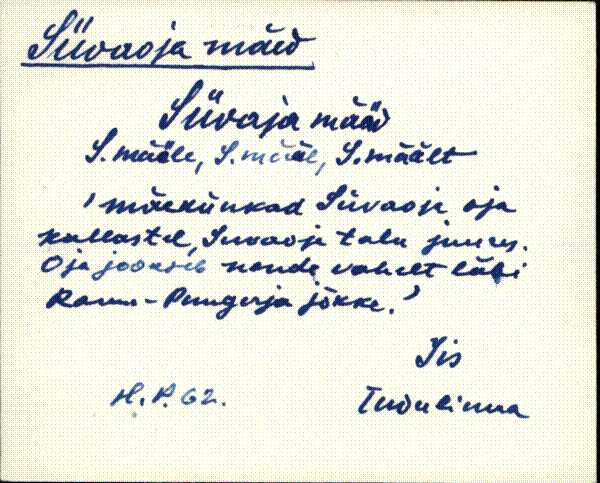 Süvaoja mäed
Süvaja määd
S. määle, S. määl, S. mäält
'mäekünkad Süvaoja oja
kallastel, Süvaoja talu juures.
Oja jookseb nende vahelt läbi
Rannu-Pungerja jõkke.'
Iis
H. P. 62.
Tudulinna